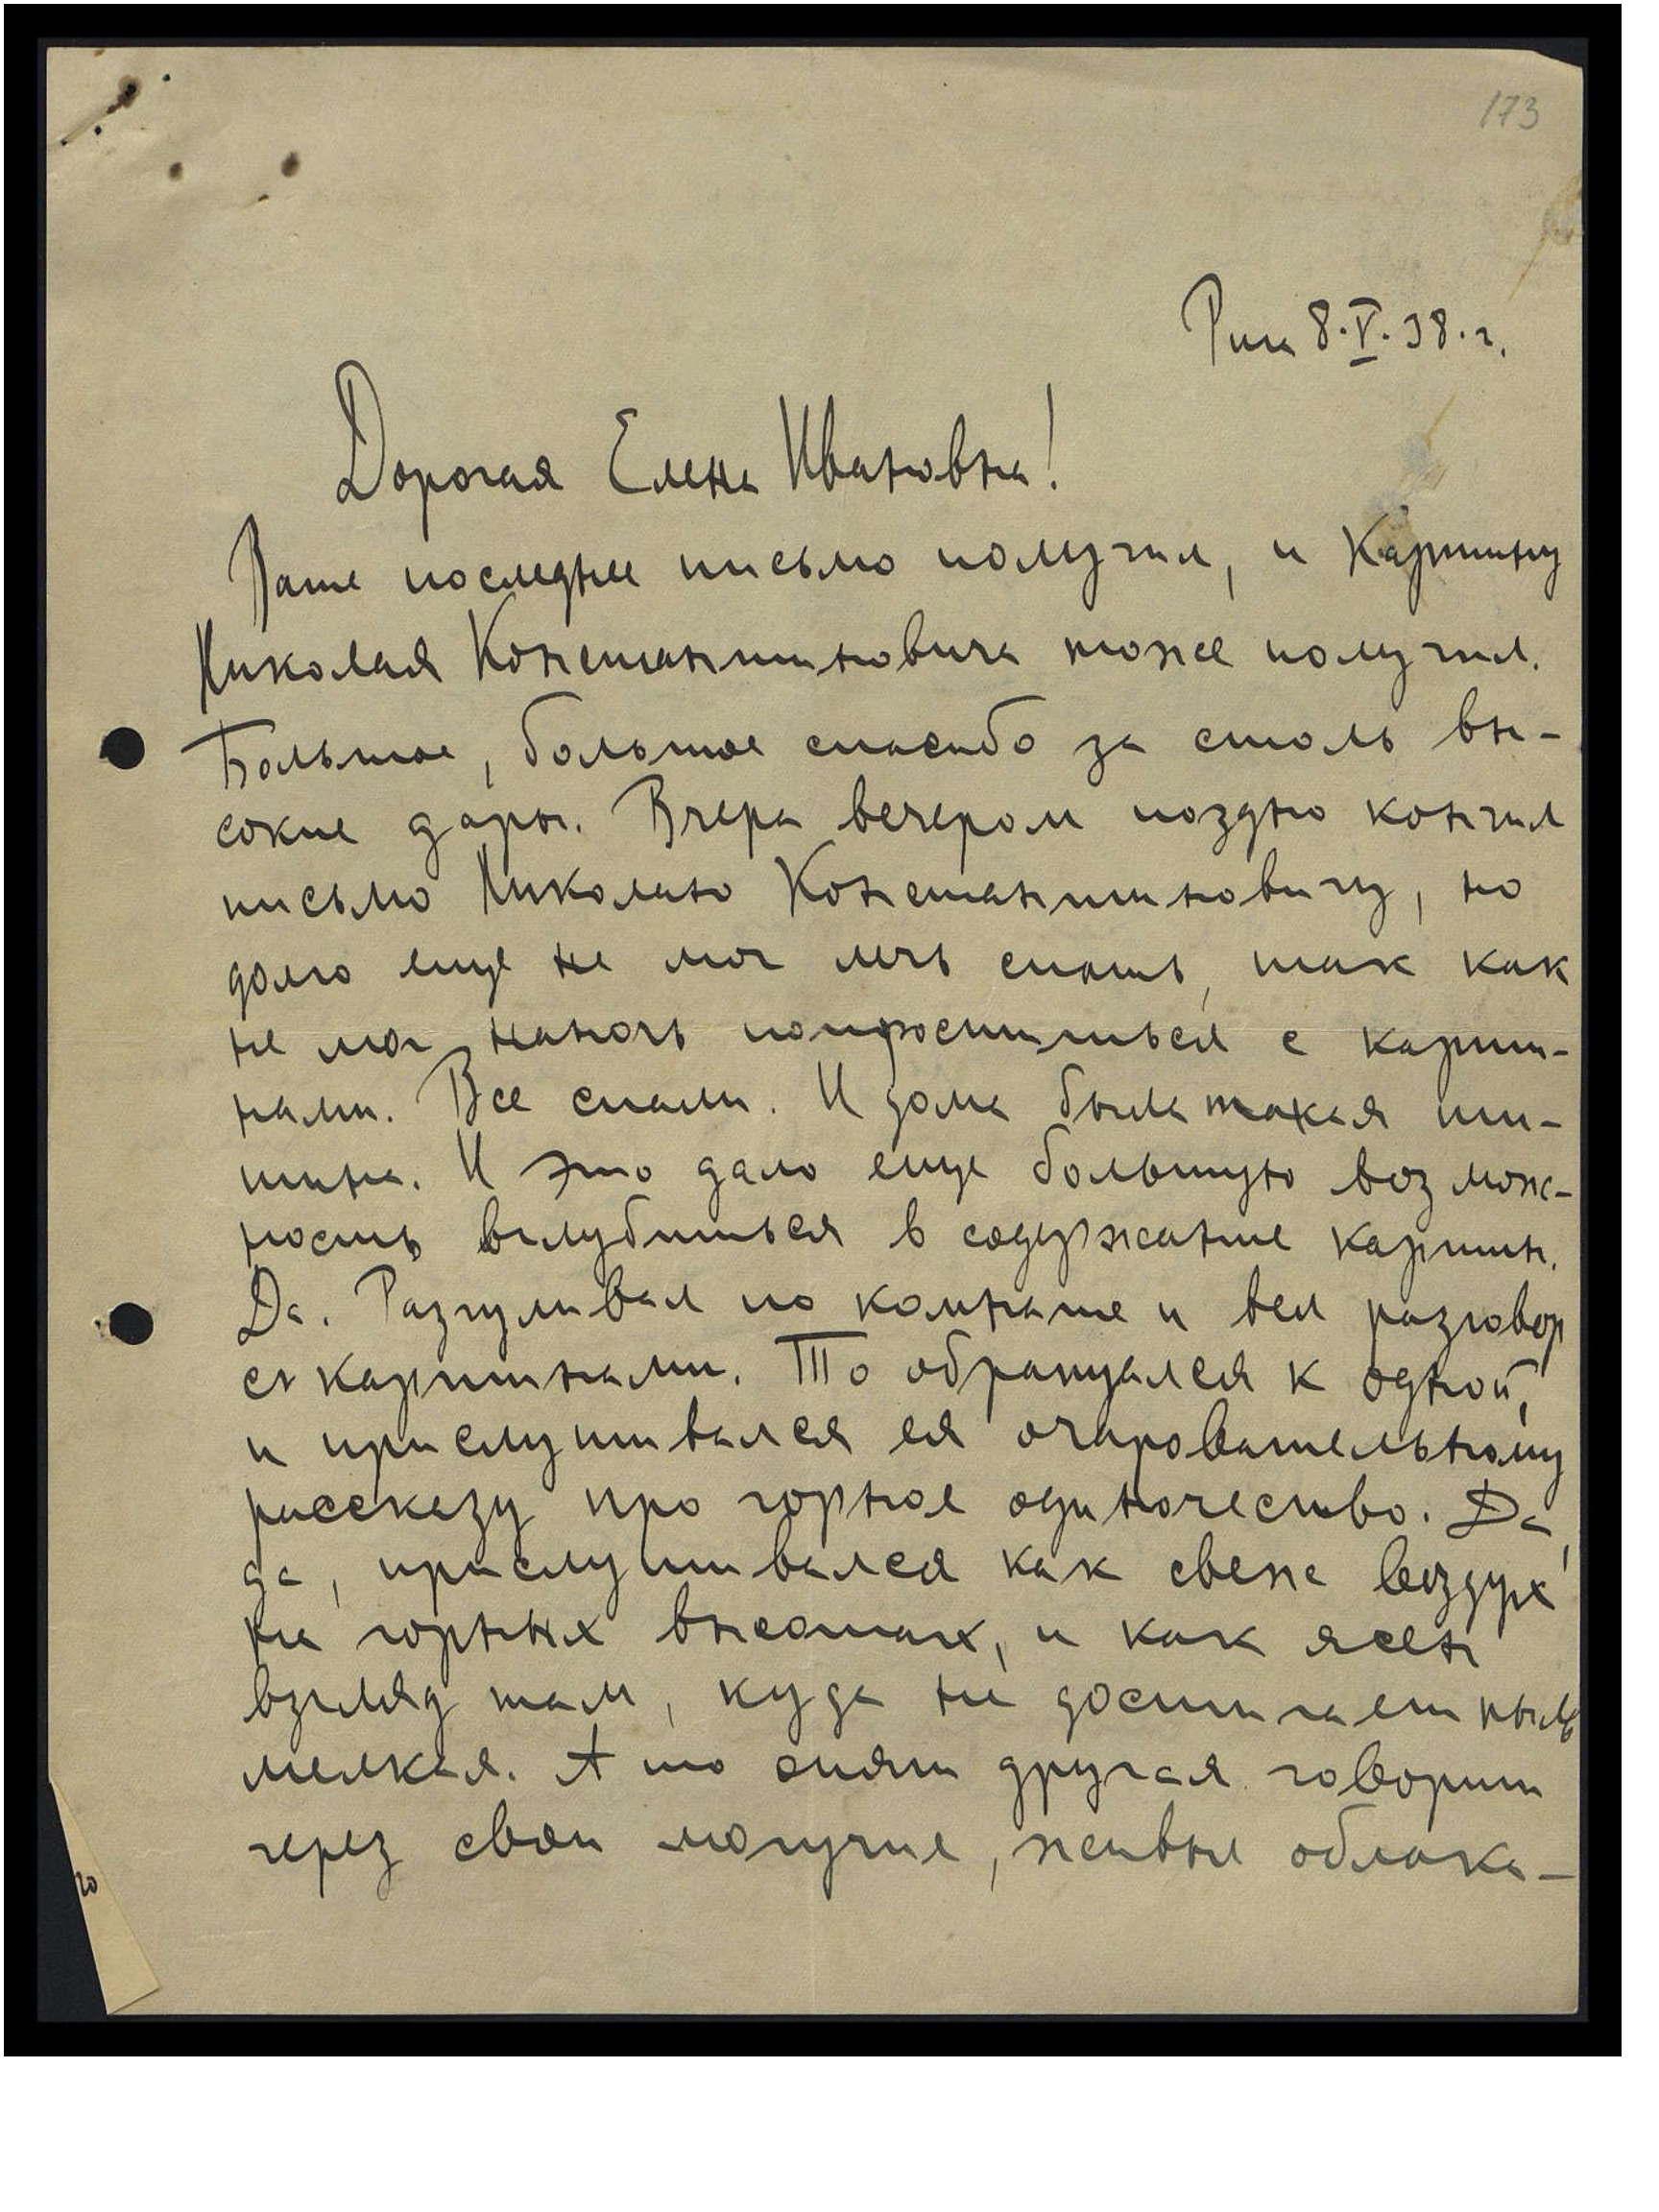 173
Рига 8.V.38.г.
Дорогая Елена Ивановна!
Ваше последнее письмо получил, и Картину
Николая Константиновича тоже получил.
Большое, большое спасибо за столь вы-
сокие дары. Вчера вечером поздно кончил
письмо Николаю Константиновичу, но
долго еще не мог лечь спать, так как
не мог наночь попроститься с карти-
нами. Все спали. И дома была такая ти-
шина. И это дало еще большую возмож-
ность вглубиться в содержание картин.
Да. Разгуливал по комнате и вел разговор
с картинами. То обращался к одной,
и прислушивался ея очаровательному
рассказу про горное одиночество. Да,
да, прислушивался как свеж воздух
на горных высотах, и как ясен
взгляд там, куда не достигает пыль
мелкая. А то опять другая говорит
через свои могучие, живые облака-
го